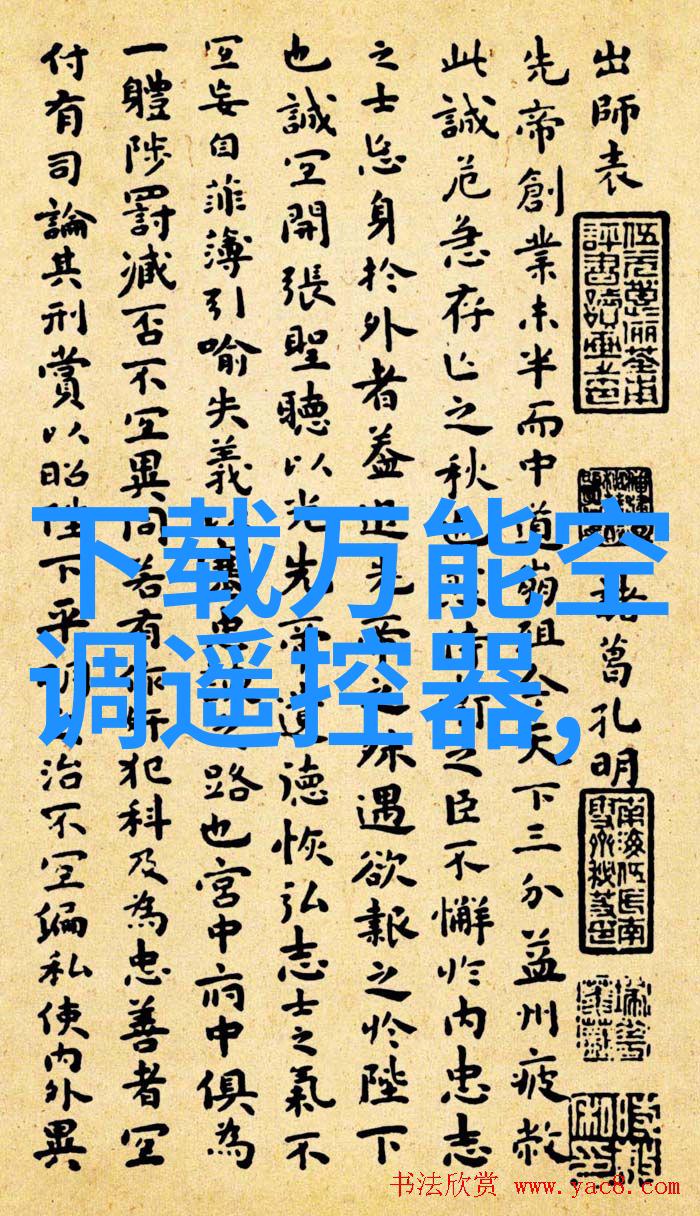 出師表
諸葛孔明
先帝創業未半而中道崩殂今天下三分益州疲敝
此誠危急存亡之秋也然侍衛之臣不懈於內忠志
之士忘身於外者蓋追先帝之殊遇欲報之於陛下
也誠宜開張聖聽以光先帝遺德恢弘志士之氣不
宜妄自菲薄引喻失義以塞忠諫之路也宮中府中俱為
一體陟罰臧否不宜異同若有作奸犯科及為忠善者宜
付有司論其刑賞以昭陛下平明之治不宜偏私使內外異
下载万能空
调遥控器,
书法欣赏 www.yac8.com